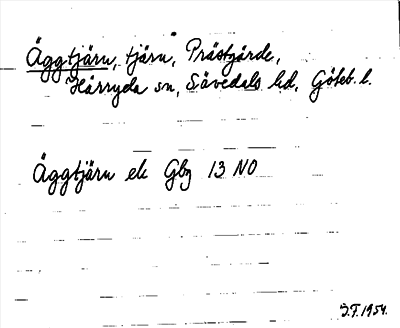 Äggtjärn, tjärn, Prästgärde,
Härryda sn, Sävedals hd, Göteb. l.
Äggtjärn ek Gbg 13 NO
S.F. 1954.